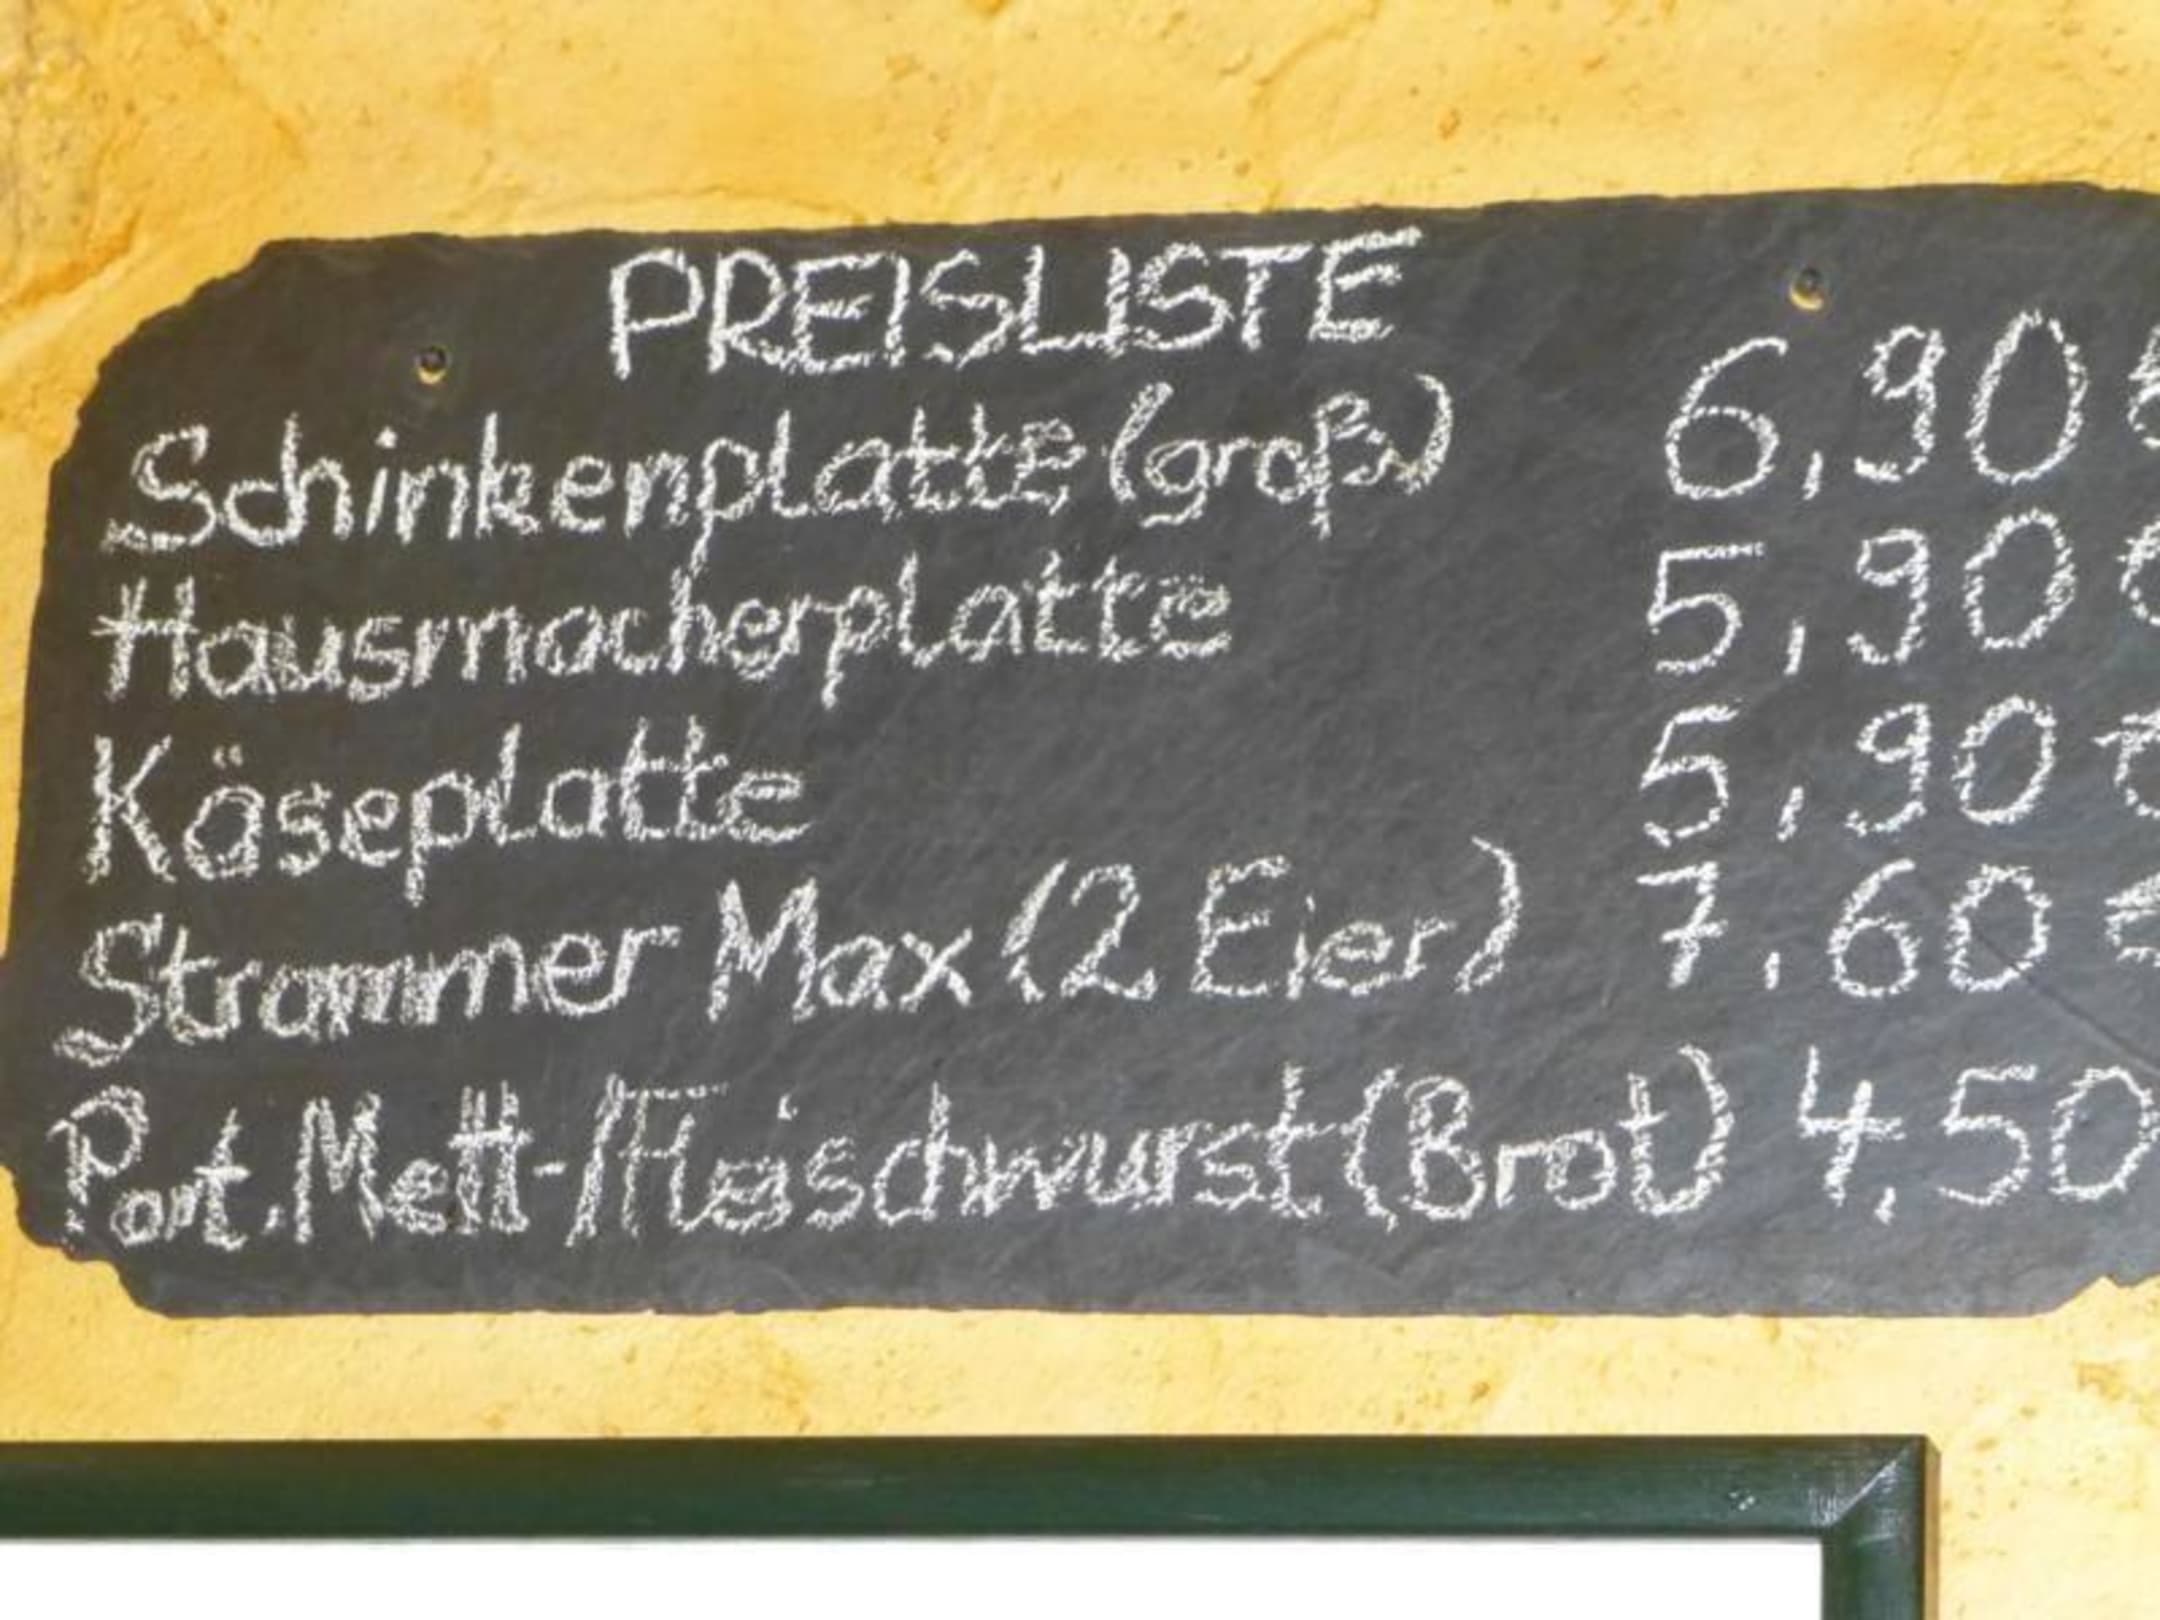 PREISLISTE
Schinkenplatte (groß) 6,90 €
Hausmacherplatte 5,90 €
Käseplatte 5,90 €
Strammer Max (2 Eier) 7,60 €
Port. Mett-/Fleischwurst (Brot) 4,50